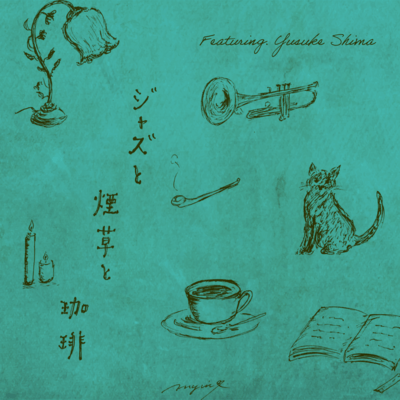 Featuring. Yusuke Shima
ジャズと
煙草と
珈琲